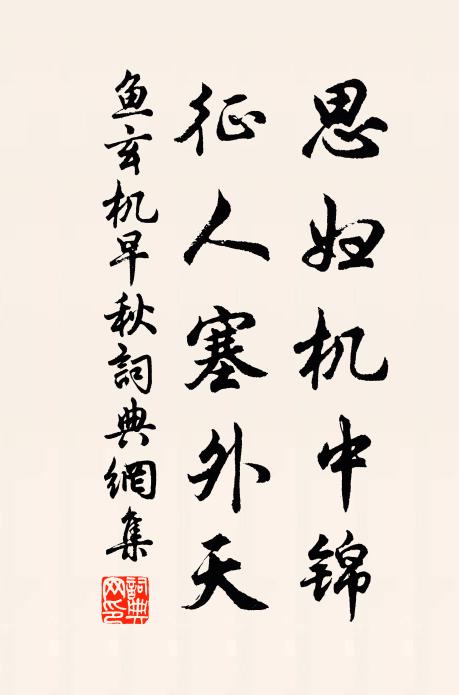 思妇机中锦
征人塞外天
鱼玄机早秋詞典網集
詞典网印